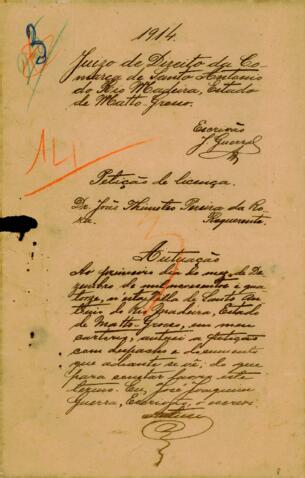 1914.
Juizo de Direito da Co-
marca de Santo Antonio
do Rio Madeira, Estado
de Matto-Grosso.
Escrivão
J. Guerra
141
Petição de licença.
Dr. João Pereira da Ro-
Requerente.
Autuação
Ao primeiro dia do mez de De-
zembro de mil novecentos e qua-
torze, n'esta villa de Santo An-
tonio do Rio Madeira, Estado
de Matto-Grosso, em meu
cartorio, autuei a petição
com despacho e documento
que adiante se vê; do que
para constar lavro este
termo. Eu, José Joaquim
Guerra, Escrivão, o escrevi.